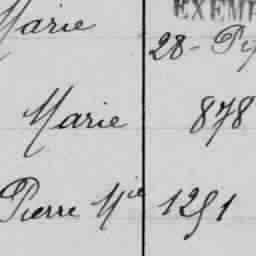 Marie EXEMP
28 - Py
Marie 878
Pierre Mie 1251